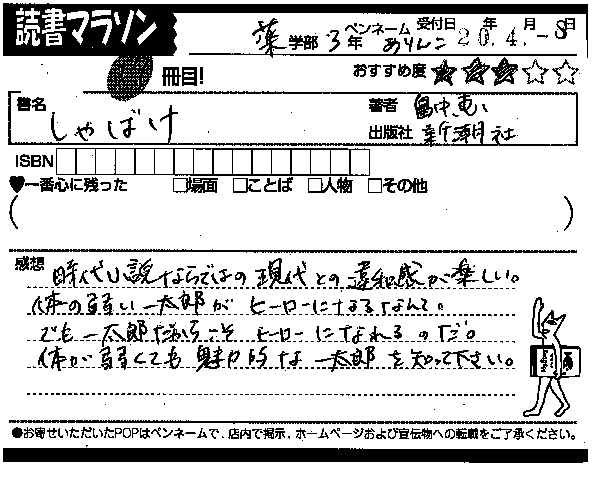 読書マラソン
薬学部 3年 ペンネーム ありんこ 受付日 20年 4.月-8日
冊目! おすすめ度 ★★★☆☆
書名 しゃばけ
著者 畠中恵
出版社 新潮社
ISBN
♥一番心に残った □場面 □ことば □人物 □その他
( )
感想 時代小説ならではの現代との違和感が楽しい。
体の弱い一太郎がヒーローになるなんて。
でも一太郎だからこそヒーローになれるのだ。
体が弱くても魅力的な一太郎を知って下さい。
●お寄せいただいたPOPはペンネームで、店内で掲示、ホームページおよび宣伝物への転載をご了承ください。